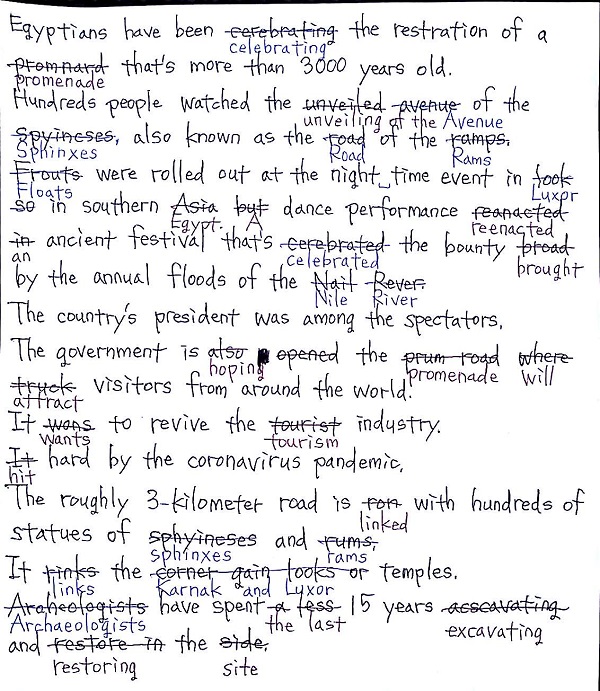 Egyptians have been cerebrating the restration of a
celebrating
promnard that's more than 3000 years old.
promenade
Hundreds people watched the unveiled avenue of the
unveiling of the Avenue
spyineses, also known as the road of the ramps.
Sphinxes Road Rams
Frouts were rolled out at the night time event in took
Floats Luxor
so in southern Asia but dance performance reanacted
Egypt. A reenacted
in ancient festival that's cerebrated the bounty broad
an celebrated brought
by the annual floods of the Nail Rever.
Nile River
The country's president was among the spectators.
The government is also opened the prum road where
hoping promenade will
truck visitors from around the world.
attract
It wans to revive the tourist industry.
wants tourism
It hard by the coronavirus pandemic.
hit
The roughly 3-kilometer road is ron with hundreds of
linked
statues of sphyineses and rums,
sphinxes rams
It rinks the corner gain tooks or temples.
links Karnak and Luxor
Araheologists have spent a less 15 years acscavating
Archaeologists the last excavating
and restore in the side.
restoring site